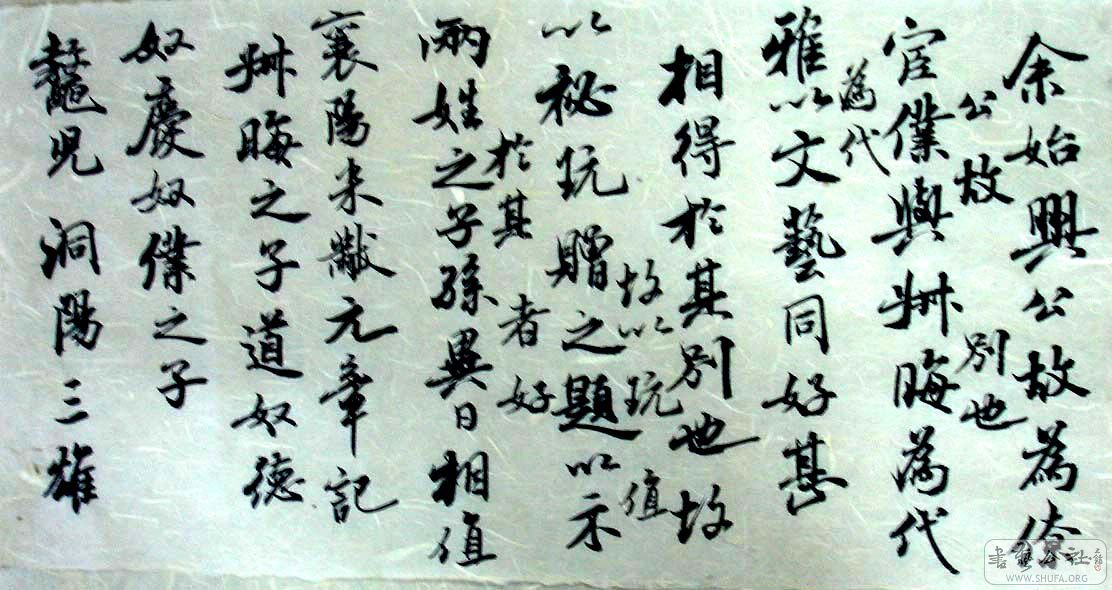 余始興公故為僚
公故 別也
宦僕與叔晦為代
為代
雅以文藝同好甚
相得於其別也故
故以玩值
以秘玩贈之題以示
於其者好
兩姓之子孫異日相值
襄陽米黻元章記
叔晦之子道奴德
奴慶奴僕之子
鼇兒洞陽三雄
WWW.SHUFA.ORG